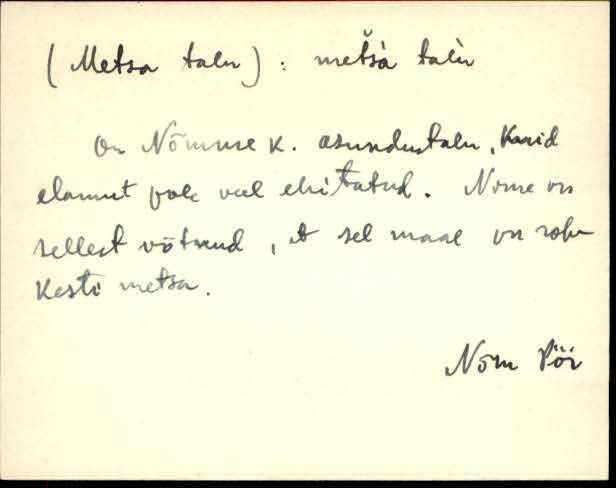 (Metsa talu) : metšà talù
On Nõmme k. asundustalu, kuid
elamut pole veel ehitatud. Nome on
sellest võtnud, et sel maal on rohkesti
metsa.
Nõm Pöi